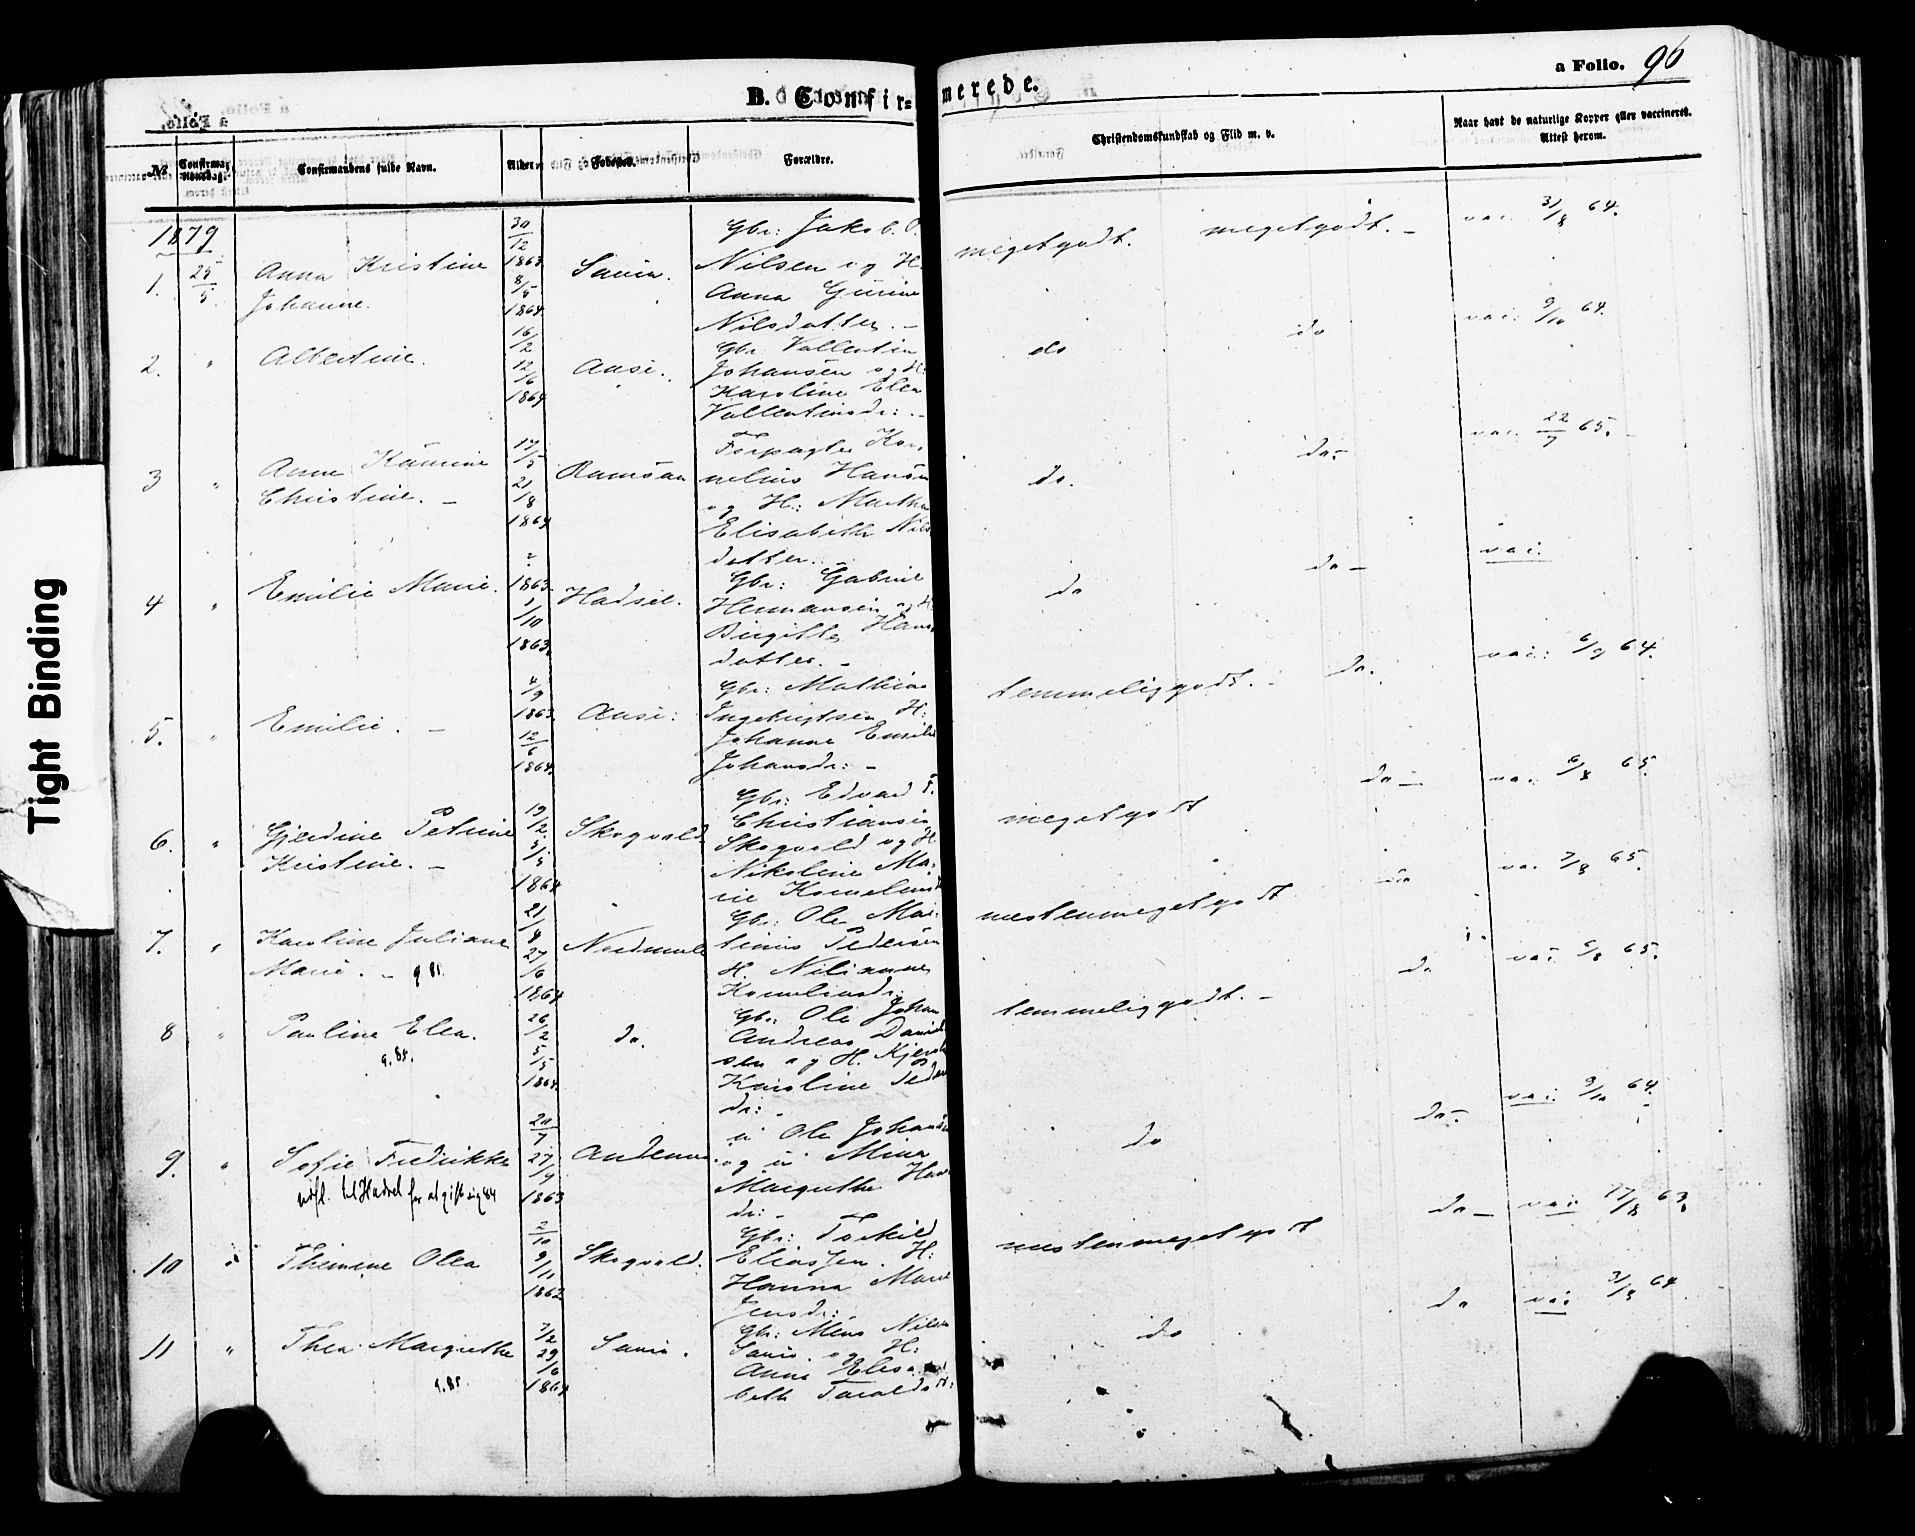 B. Confir=
merede.
a Folio. 96
No
Confirmationsdag.
Confirmandens fulde Navn.
Alder
Fødested.
Forældre.
Christendomskundskab og Flid m. v.
Naar havt de naturlige Kopper eller vaccineret.
Attest herom.
1879
1. 25/5 Anna Kristine
Johanne.
30/12 1863
8/5 1864
Gbr: Jakob
Nilsen og H.
Anna Gurine
Nilsdatter. -
megetgodt. megetgodt. - vac. 31/8 64.
2. " Albertine.
16/2
12/6
1864
Aase.
Gbr. Vallentin
Johansen og H.
Karoline Elen
Vallentinsdr: -
do do vac. 9/10 64.
3 " Anne
Christine. -
17/5
21/8
1864
Ramsaa
Forpagter Kor
nelius Hansen
og H: Martha
Elisabeth Nils
datter. -
do. do - vac. 22/7 65.
4 " Emilie Marie.
1863.
1/10
1863.
Hadsel.
Gbr: Gabriel
Hermansen og H.
Birgitte Hans
datter. -
do do - vac.
5. " Emilie. -
4/9
1863
12/6
1864.
Aase:
Gbr: Mathias
Ingebrigtsen H:
Johanne Emilie
Johansdr: -
temmeliggodt. - do. vac: 6/9 64.
6. " Gjerdine Petrine
Kristine. -
19/2
5/5
1864
Skogvold
Gbr: Edvard
Christiansen
Skogvold og H
Nikoline Ma=
rie Kornelius
megetgodt do - vac. 6/8 65.
7. " Karoline Juliane
Marie. - g 81.
27/6
1864
Nordmele
Gbr: Ole Mar
tinus Pedersen
H. Nilianna
Korneliusdr:
næstenmegetgodt do vac. 7/8 65.
8 " Pauline Elea.
g. 85.
26/2
5/5
1864.
do.
Gbr: Ole Johan
Andreas Daniel
sen og H. Kjerst
Karoline Peders
dr: -
temmeliggodt. - do vac 6/8 65.
9. " Sofie Fredrikke
udfl. til Hadsel for at gifte sig 84
20/7
27/9
1863
Andenes
u Ole Johansen
og u Mina
Margrethe Hans
dr: -
do do - vac. 9/10 64.
10 " Thimine Olea
2/10
9/11
1862
Skogvold.
Gbr: Torkild
Eliassen. H:
Hanna Marie
Jensdr:
næstenmegetgodt do - vac: 17/8 63.
11 " Thea Margrethe
g. 85
7/2
29/6
1864
Gbr: Mens Nilsen
og H:
Anne Elisa
beth Taraldsdt:
do do vac 31/8 64
Tight Binding